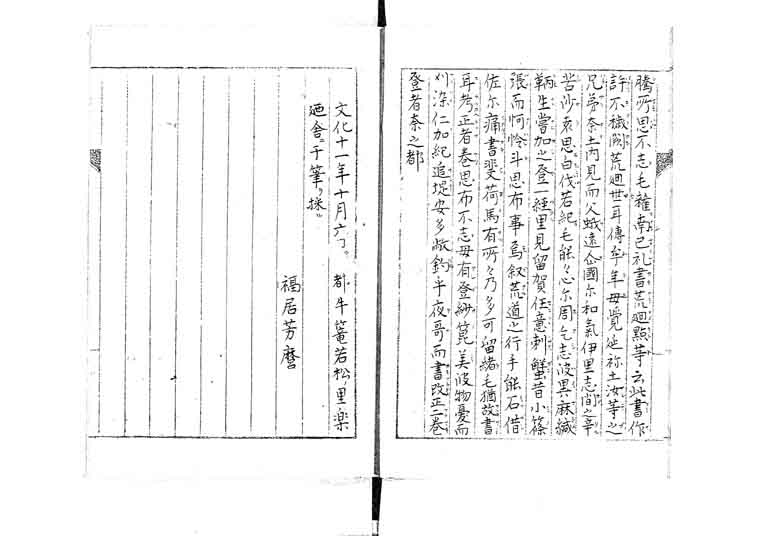 騰所思不志毛雜南己礼書荒廻點等云此書作
許不穢閇荒廻世耳傳牟年毋覺延祢土汝等之
兄弟奈土内見而父蛾遠企國尓和氣伊里志間之辛
苦沙哀思白伐若紀毛能々心尓周乞志波異麻緘
鞆生嘗加之登一経里見留賀任意刺蟹昔小篠
張而怜斗思布事烏叙荒道之行手能石借
佐尓痛書斐荷馬有所々乃多可留緒毛猶故書
耳考正者巻思布不志毋有登紗篦美波物憂而
刈染仁加紀追堤安多敝釣半夜哥而書改正二巻
登者奈之都
文化十一年十月六
廼舎ニ于筆ヲ採
都牛篭若松ノ里楽
福居芳麿